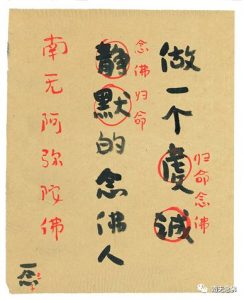 做一个虔诚
归命念佛
静默的念佛人
念佛归命
南无阿弥陀佛